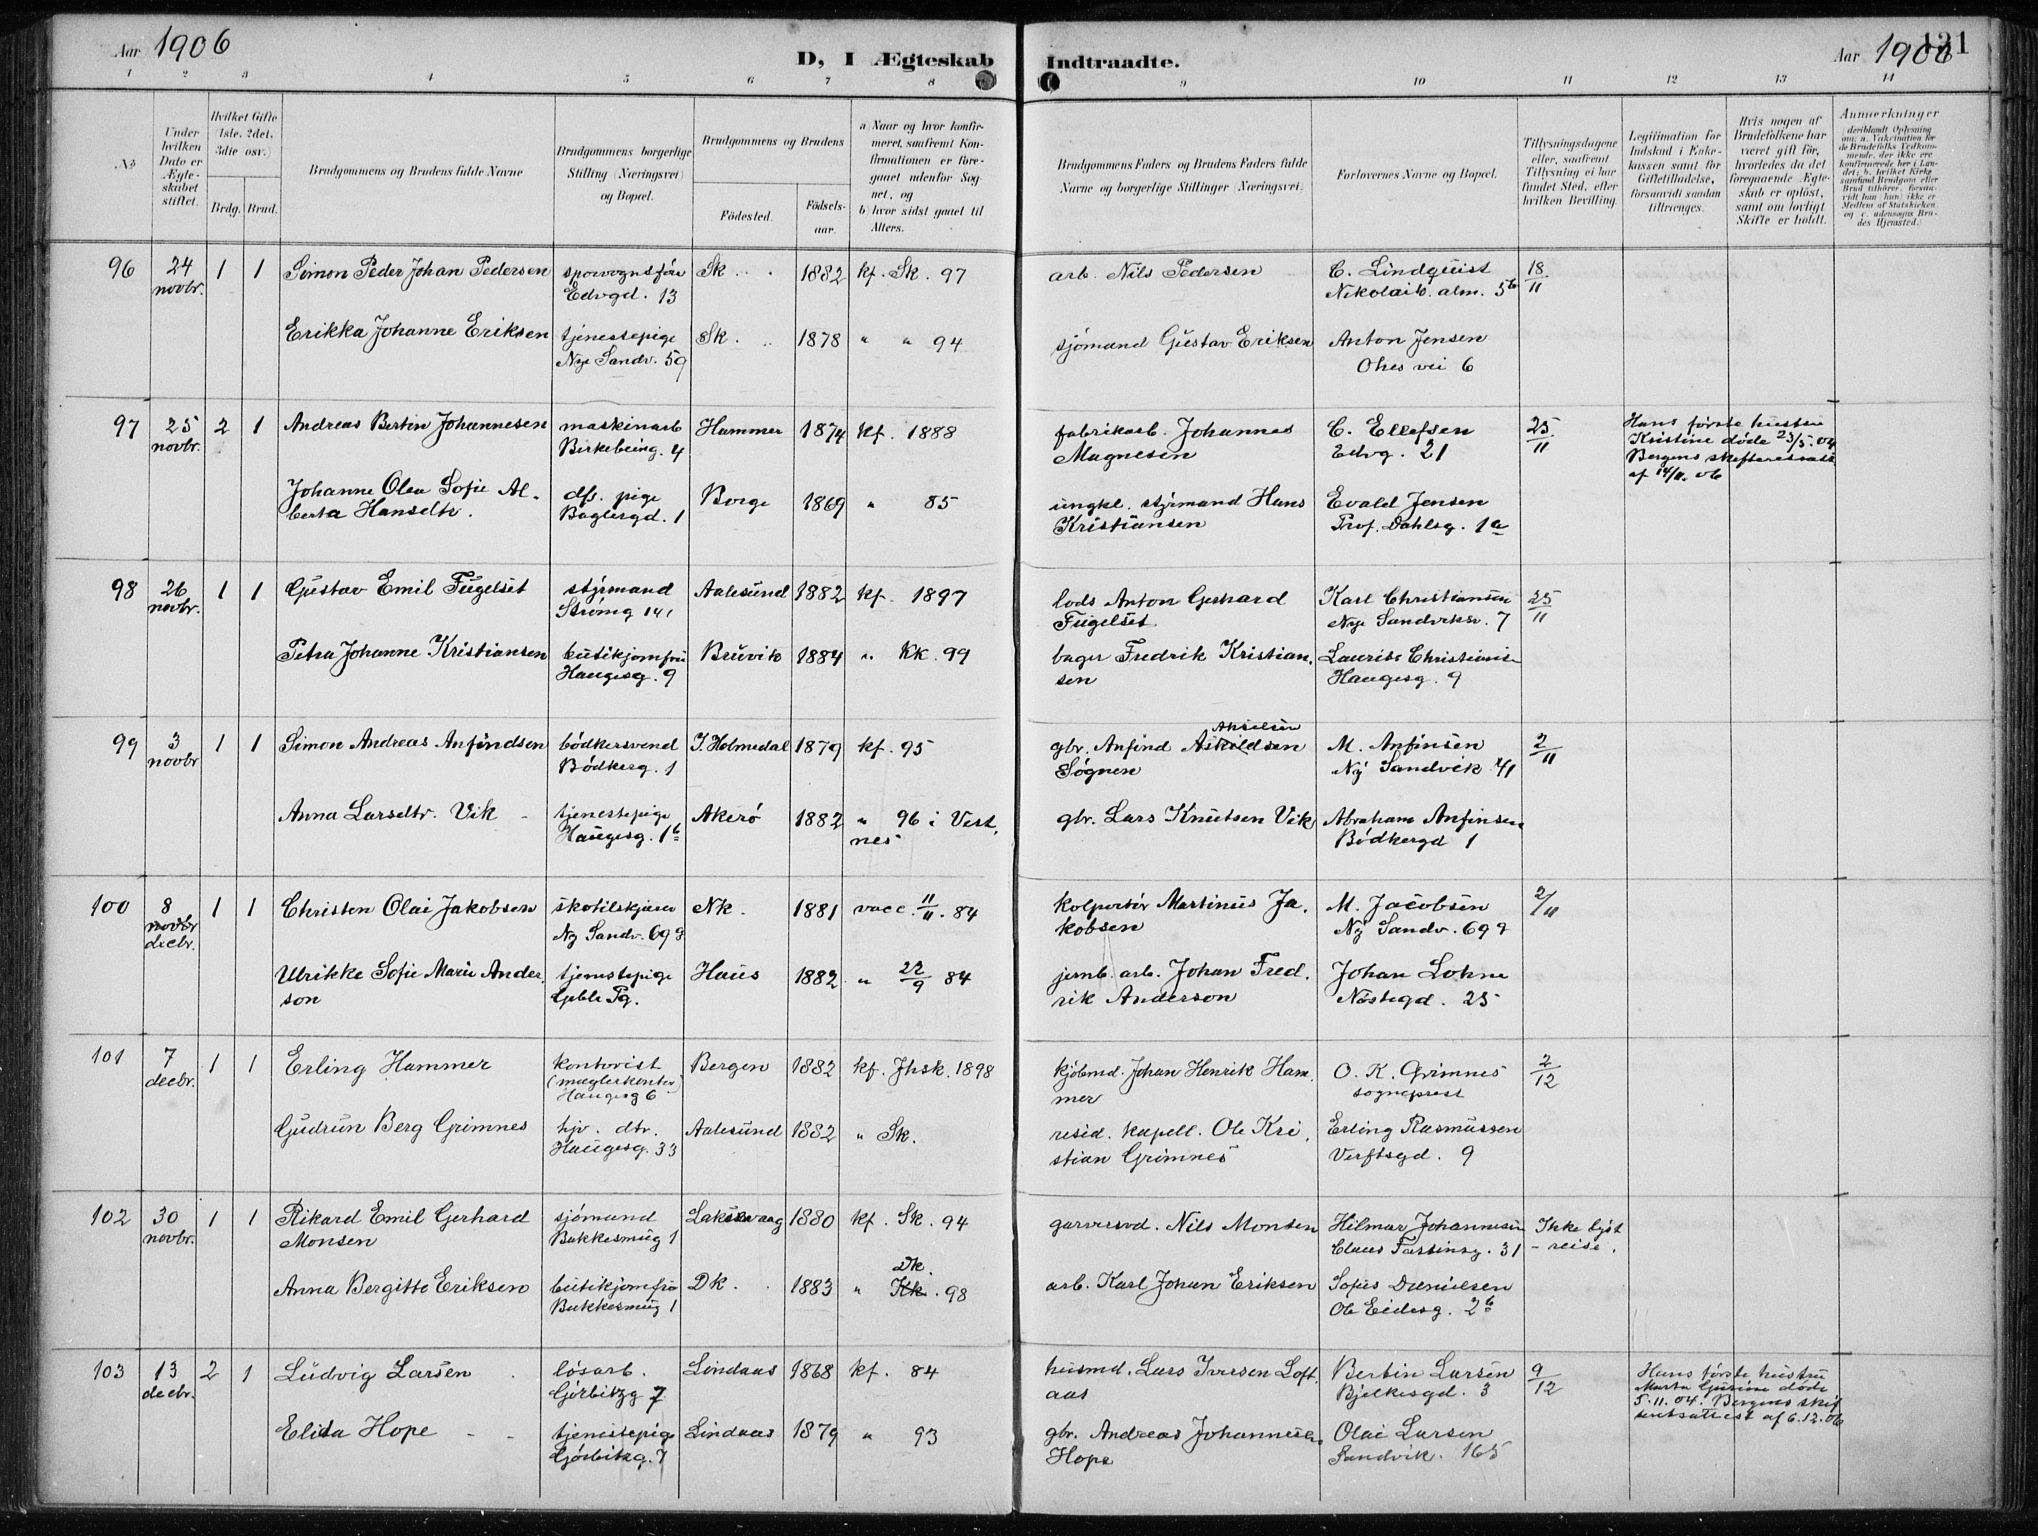 Aar 1906
D, I Ægteskab Indtraadte.
Aar 1906
131
1 2 3 4 5 6 7 8 9 10 11 12 13 14
No
Under hvilken Dato er Ægteskabet stiftet.
Hvilket Gifte (1ste, 2det, 3die osv.)
Brdg. Brud.
Brudgommens og Brudens fulde Navne
Brudgommens borgerlige Stilling (Næringsvei) og Bopæl.
Brudgommens og Brudens
Födested.
Födselsaar.
a) Naar og hvor konfirmeret, saafremt Konfirmationen er foregaaet udenfor Sognet, og
b) hvor sidst gaaet til Alters.
Brudgommens Faders og Brudens Faders fulde Navne og borgerlige Stillinger (Næringsvei).
Forlovernes Navne og Bopæl.
Tillysningsdagene eller, saafremt Tillysning ei har fundet Sted, efter hvilken Bevilling.
Legitimation for Indskud i Enkekassen samt for Giftetilladelse, forsaavidt saadan tiltrænges.
Hvis nogen af Brudefolkene har været gift før, hvorledes da det foregaaende Ægteskab er opløst, samt om lovligt Skifte er holdt.
Anmerkninger
96 24 novbr. 1 1 Simon Peder Johan Pedersen sporvognsför. Edvgd. 13 Sk. 1882 kf. Sk. 97 arb. Nils Pedersen C. Lindquist Nikolaik. alm. 5b 18/11
Erikka Johanne Eriksen tjenestepige Nye Sandv. 59 Sk. 1878 " " 94 sjömand Gustav Eriksen Anton Jensen Ohes vei 6
97 25 novbr. 2 1 Andreas Bertin Johannesen maskinarb Birkebeing. 4 Hammer 1874 kf. 1888 fabrikarb. Johannes Magnesen C. Ellefsen Edvg. 21 25/11 Hans første hustru Kristine døde 23/5.04 Bergens skifteretsatt. af 14/11.06
Johanne Olea Sofie Alberta Hansdtr. dfs. pige Baglergd. 1 Borge 1869 " 85 ungkl. styrmand Hans Kristiansen Evald Jensen Prof. Dahlsg. 1a
98 26 novbr. 1 1 Gustav Emil Fugelset styrmand Strømg 141 Aalesund 1882 kf. 1897 lods Anton Gerhard Fugelset Karl Christiansen Nye Sandviksv. 7 25/11
Petra Johanne Kristiansen butikjomfru Haugesg. 9 Bruvik 1884 " Kk. 99 bager Fredrik Kristiansen Laurits Christiansen Haugesg. 9
99 3 novbr 1 1 Simon Andreas Anfindsen bödkersvend Bödkerg. 1 I. Holmedal 1879 kf. 95 gbr. Anfind Askildsen Akselsen Søgnen M. Anfinsen Ny Sandvik 71 2/11
Anna Larsdtr. Vik tjenestepige Haugesg. 1b Akerö 1882 " 96 i Vestnes gbr. Lars Knutsen Vik Abraham Anfinsen Bødkergd 1
100 8 novbr decbr. 1 1 Christen Olai Jakobsen skotilskjærer Ny Sandv. 69 Nk. 1881 vacc. 11/11. 84 kolportör Martinus Jakobsen M. Jacobsen Ny Sandv. 69 2/11
Ulrikke Sofie Marie Anderson tjenestepige Gble Pg. Haus 1882 " 22/9 84 jernb. arb. Johan Fredrik Anderson Johan Lohne Nøstegd. 25
101 7 decbr. 1 1 Erling Hammer kontorist (mæglerkontor) Haugesg 6 Bergen 1882 kf. Jhsk. 1898 kjöbmd. Johan Henrik Hammer O. K. Grimnes sogneprest 2/12
Gudrun Berg Grimnes hjv. dtr. Haugesg. 33 Aalesund 1882 " Sk. resid. kapell. Ole Kristian Grimnes Erling Rasmussen Verftsgd. 9
102 30 novbr. 1 1 Rikard Emil Gerhard Monsen sjömand Bakkesmug 1 Laksevaag 1880 kf. Sk. 94 garversvd. Nils Monsen Hilmar Johannesen Claus Fastingsg. 31 Ikke lyst - reise.
Anna Bergitte Eriksen butikjomfru Bakkesmug 1 Dk. 1883 " Kk. Dk. 98 arb. Karl Johan Eriksen Sofus Danielsen Ole Eidesg. 2b
103 13 decbr. 2 1 Ludvig Larsen løsarb. Gørbitzg 7 Lindaas 1868 kf. 84 husmd. Lars Iversen Loftaas Bertin Larsen Bjelkesgd. 3 9/12 Hans første hustru Marta Gurine døde 5.11.04. Bergens skifteretsattest af 6.12.06
Elisa Hope tjenestepige Gjørbitzg. 7 Lindaas 1879 " 93 gbr. Andreas Johannesen Hope Olai Larsen Sandvik. 165